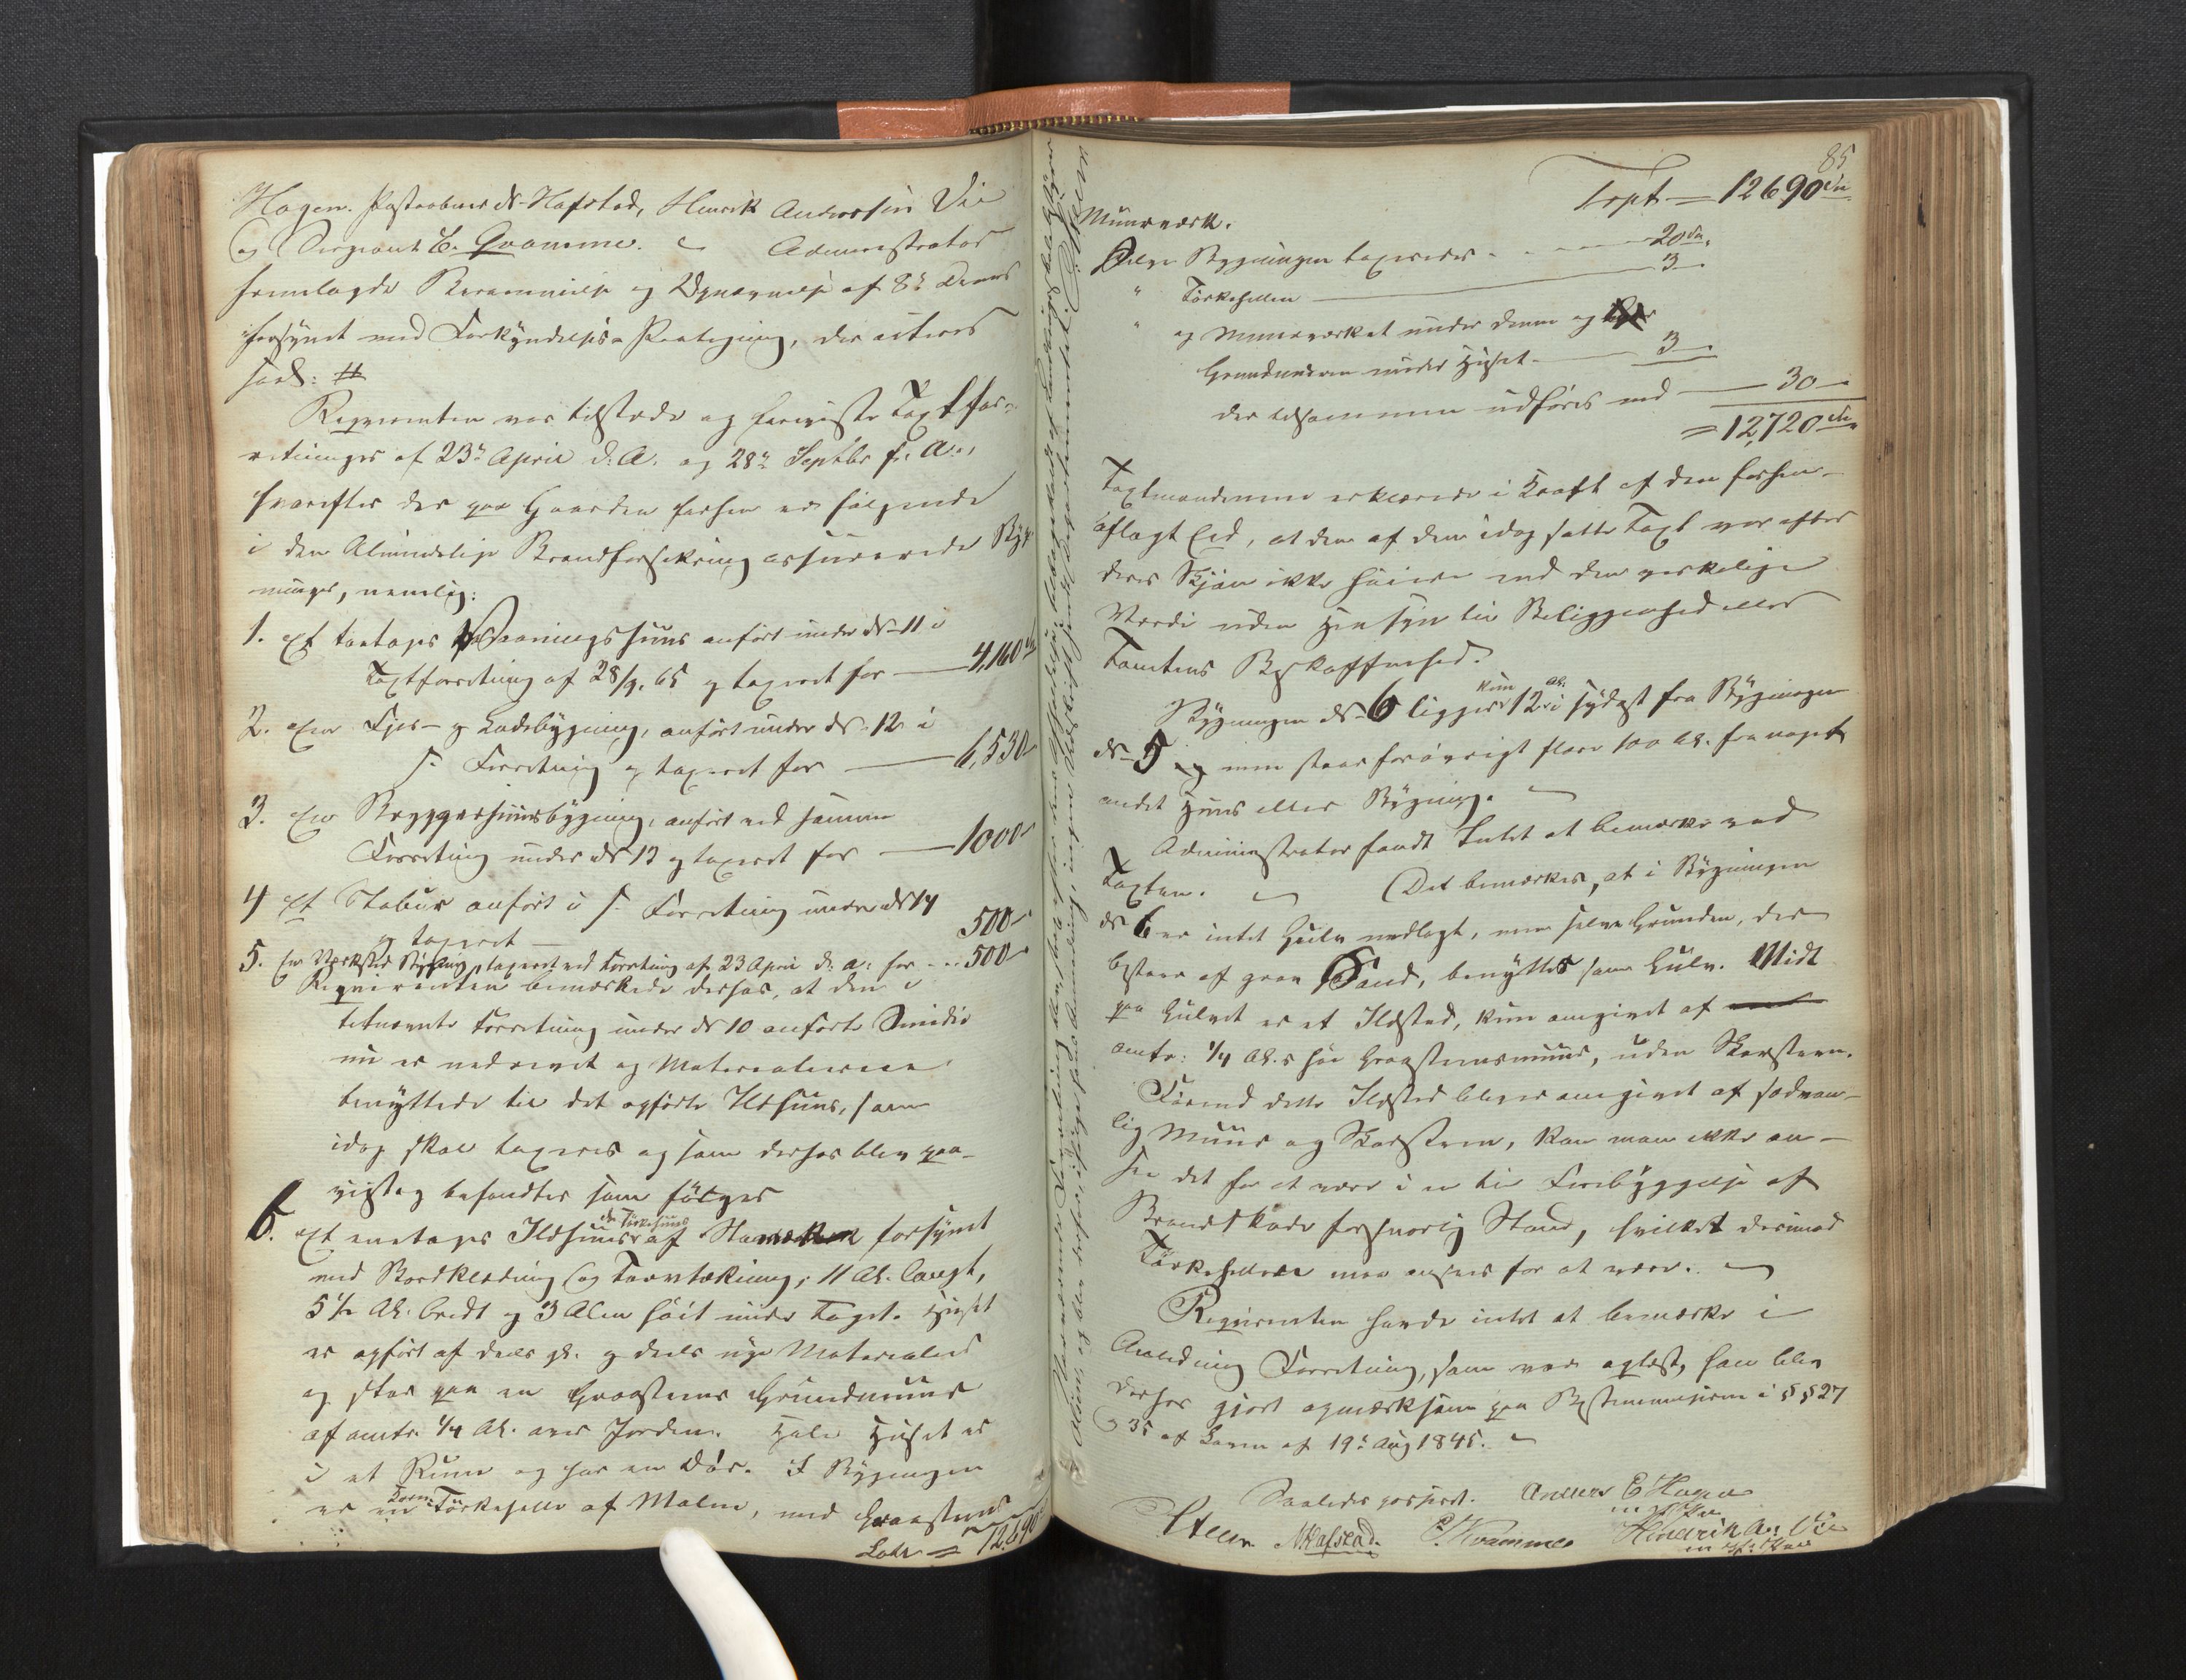 Hagen. Postaabner N. Hafstad, Henrik Anderssen Vie
og Sergeant E. Qvamme. Administrator
fremlagde Berammelse og Udnævnelse af 8de dennes
forsynet med Forkyndelses-Paategning, der citeres
saal: #
Reqvirenten var tilstede og foreviste Taxtfor-
retninger af 23de April d. A. og 28de Septbr f. A.,
hvorefter der paa Gaarden forhen er følgende
i den Almindelige Brandforsikring assurerede Byg-
ninger, nemlig:
1. Et toetages Vaaningshuus anført under No 11 i
Taxtforretning af 28/9. 65 og taxeret for — 4,160
2. En Fjøs- og Ladebygning, anført under No 12 i
s. Forretning og taxeret for — 6,530
3. En Bryggerhuusbygning, anført ved samme
Forretning under No 13 og taxeret for — 1000
4 Et Stabur anført i s. Forretning under No 14
og taxeret — 500
5. En Værksted Bygning taxeret ved Forretning af 23 April d. a. for — 500
Reqvirenten bemærkede derhos, at den i
sidstnævnte Forretning under No 10 anførte Smidie
nu er nedrevet og Materialierne
benyttede til det opførte Ildhuus, som
idag skal taxeres og som derhos blev paa-
vist og befandtes som følger
6. Et eenetages Ildhuus og Tørkehuus af Stavværk forsynet
med Bordklædning og Torvtækning, 11 Al. langt,
5 1/2 Al. bredt og 3 Alen høit under Taget. Huset
er opført af deels gl. og deels nye Materialier
og staar paa en Graasteens Grundmuur
af omtr. 1/4 Al. over Jorden. Hele Huset er
i et Rum og har en Dør. I Bygningen
er en Korn Tørkehelle af Malm, med Graasteens
Latr = 12,690
85
Trpt = 12690 Sp
Muurværk.
Selve Bygningen taxeredes — 20 Sp.
" Tørkehellen — 3
" og Muurværket under denne og
Grundmuren under Huset — 3
der tilsammen udføres med — 30
= 12,720 Sp
Taxtmændene erklærede i Kraft af den forhen
aflagt Eed, at den af dem idag satte Taxt var efter
deres Skjøn ikke høiere end den virkelige
Værdi uden Hensyn til Beliggenhed eller
Tomtens Beskaffenhed.
Bygningen No 6 ligger kun 12 Al. i sydost fra Bygningen
No 5 men staar forøvrigt flere 100 Al. fra noget
andet Huus eller Bygning.
Administrator fandt Intet at bemærke ved
Taxten. Det bemærkes, at i Bygningen
No 6 er intet Gulv nedlagt, men selve Grunden, der
bestaar af graa Sand, benyttes som Gulv. Midt
paa Gulvet er et Ildsted, kun omgivet af
omtr: 1/4 Al.s høi Graasteensmuur, uden Skorsteen.
Førend dette Ildsted bliver omgivet af sædvan-
lig Muur og Skorsteen, kan man ikke an-
see det for at være i en til Forebyggelse af
Brandskade forsvarlig Stand, hvilket derimod
Tørkehellen maa ansees for at være.
Reqvirenten havde intet at bemærke i
Anledning Forretning, som var oplæst, han blev
derhos gjort opmærksom paa Bestemmelserne i §§ 27
og 35 af Loven af 19de Aug 1845.
Saaledes passeret. Anders E Hagen
m. p. P.
Steen N Hafstad. E. Kvamme Hendrik A. Vie
m. p. P.